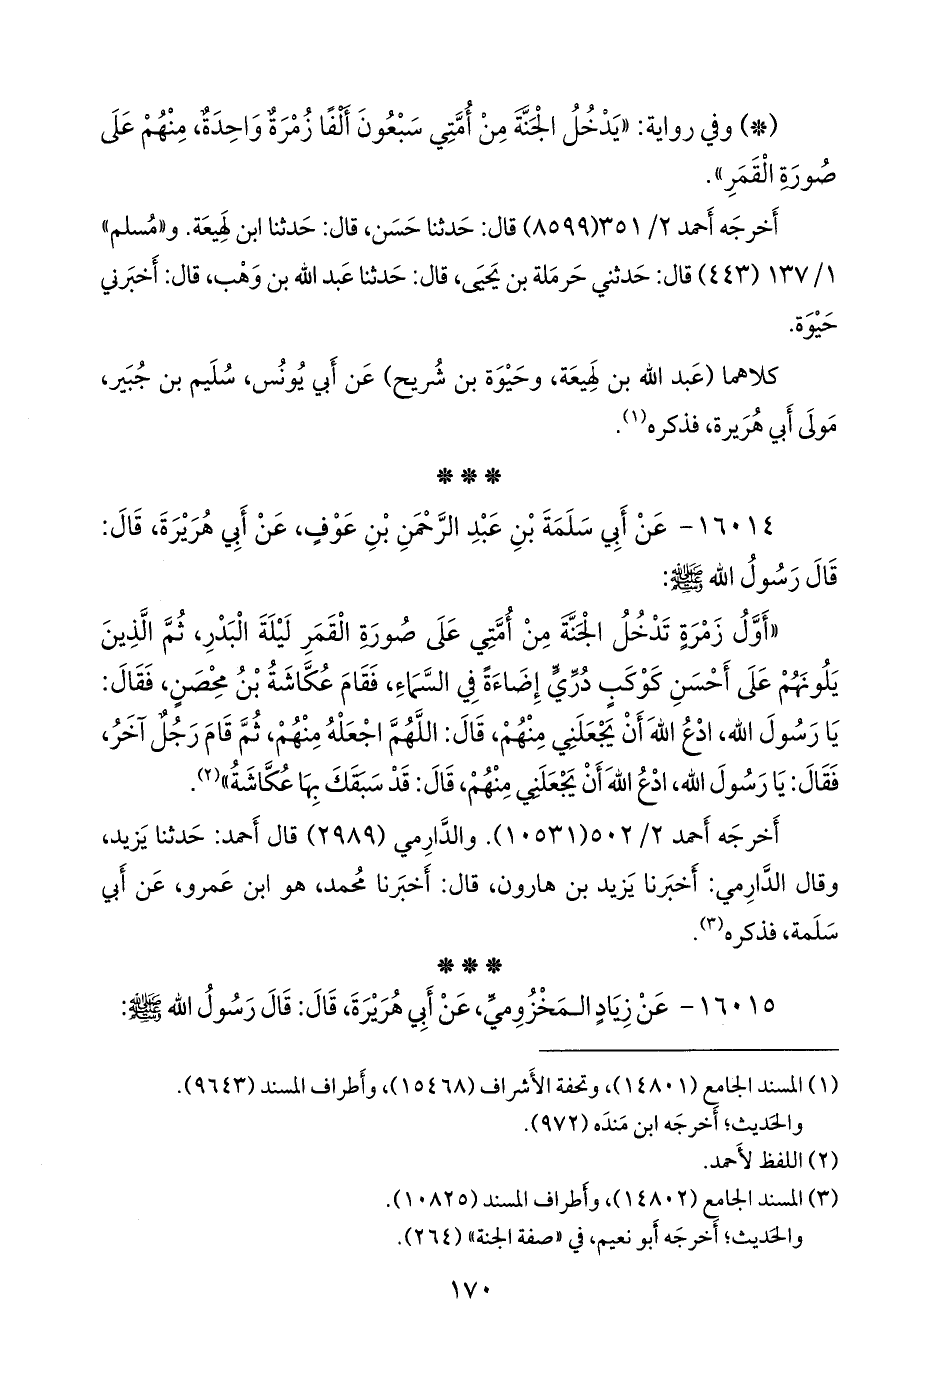 (*) وفي رواية: «يَدْخُلُ الجْنَّةَ مِنْ أُمَّتِي سَبْعُونَ أَلْفًا زُمْرَةٌ وَاحِدَةٌ، مِنْهُمْ عَلَى
صُورَةِ الْقَمَرِ».
أَخرجَه أَحمد ٢/ ٣٥١(٨٥٩٩) قال: حَدثنا حَسَن، قال: حَدثنا ابن لَهِيعَة. و«مُسلم»
١/ ١٣٧ (٤٤٣) قال: حَدثني حَرملة بن يَحيَى، قال: حَدثنا عَبد الله بن وَهْب، قال: أَخبَرني
حَيْوَة.
كلاهما (عَبد الله بن لَهِيعَة، وحَيْوَة بن شُريح) عَن أَبي يُونُس، سُلَيم بن جُبَير،
مَولَى أَبي هُرَيرة، فذكره(١).
* * *
١٦٠١٤- عَنْ أَبِي سَلَمَةَ بْنِ عَبْدِ الرَّحْمَنِ بْنِ عَوْفٍ، عَنْ أَبِي هُرَيْرَةَ، قَالَ:
قَالَ رَسُولُ الله ﷺ:
«أَوَّلُ زُمْرَةٍ تَدْخُلُ الجْنَّةَ مِنْ أُمَّتِي عَلَى صُورَةِ الْقَمَرِ لَيْلَةَ الْبَدْرِ، ثُمَّ الَّذِينَ
يَلُونَهُمْ عَلَى أَحْسَنِ كَوْكَبٍ دُرِّيٍّ إِضَاءَةً فِي السَّمَاءِ، فَقَامَ عُكَّاشَةُ بْنُ مِحْصَنٍ، فَقَالَ:
يَا رَسُولَ الله، ادْعُ اللهَ أَنْ يَجْعَلَنِي مِنْهُمْ، قَالَ: اللَّهُمَّ اجْعَلْهُ مِنْهُمْ، ثُمَّ قَامَ رَجُلٌ آخَرُ،
فَقَالَ: يَا رَسُولَ الله، ادْعُ اللهَ أَنْ يَجْعَلَنِي مِنْهُمْ، قَالَ: قَدْ سَبَقَكَ بِهَا عُكَّاشَةُ»(٢).
أَخرجَه أَحمد ٢/ ٥٠٢(١٠٥٣١). والدَّارِمي (٢٩٨٩) قال أَحمد: حَدثنا يَزيد،
وقال الدَّارِمي: أَخبَرنا يَزيد بن هارون، قال: أَخبَرنا مُحمد، هو ابن عَمرو، عَن أَبي
سَلَمة، فذكره(٣).
* * *
١٦٠١٥- عَنْ زِيَادٍ الـمَخْزُومِيِّ، عَنْ أَبِي هُرَيْرَةَ، قَالَ: قَالَ رَسُولُ الله ﷺ:
(١) المسند الجامع (١٤٨٠١)، وتحفة الأَشراف (١٥٤٦٨)، وأَطراف المسند (٩٦٤٣).
والحَديث؛ أَخرجَه ابن مَندَه (٩٧٢).
(٢) اللفظ لأَحمد.
(٣) المسند الجامع (١٤٨٠٢)، وأَطراف المسند (١٠٨٢٥).
والحَديث؛ أَخرجَه أَبو نعيم، في «صفة الجنة» (٢٦٤).
١٧٠